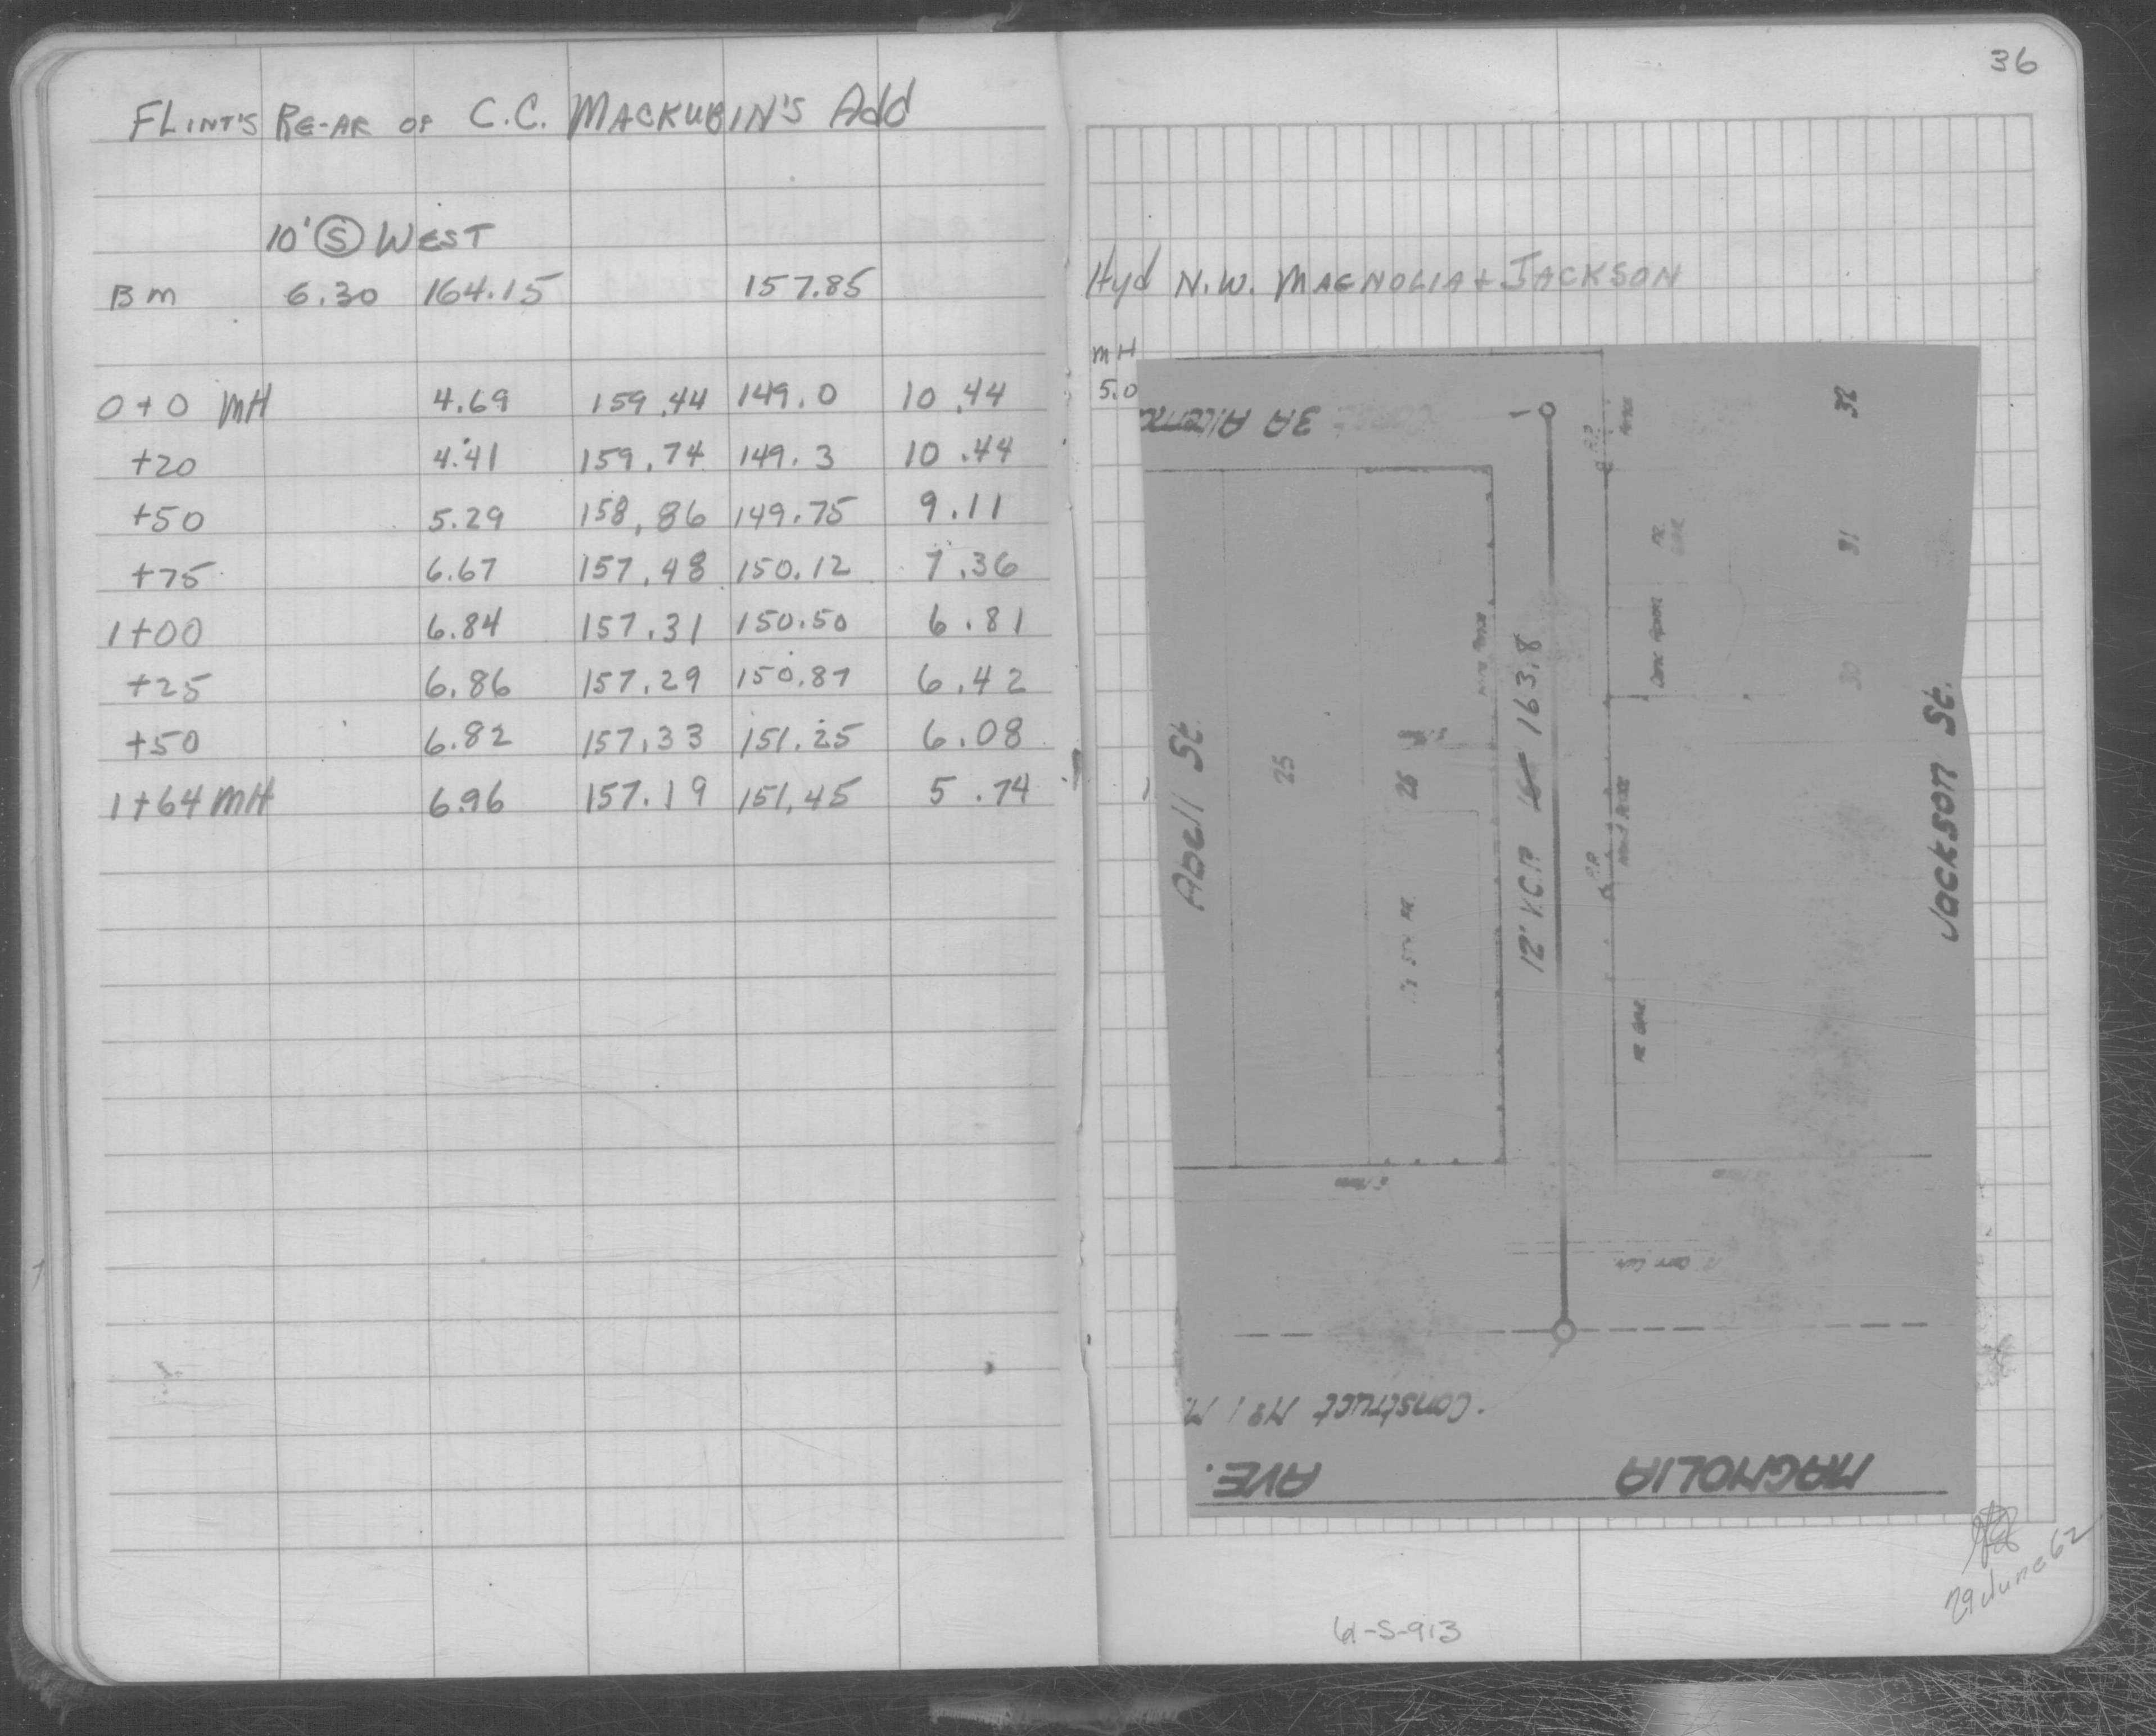 36
FLINT'S RE-AR OF C.C. MACKUBIN'S Add
10' S WEST
BM 6.30 164.15 157.85
Hyd N.W. MAGNOLIA + JACKSON
MH
5.0
0+0 MH 4.69 159.44 149.0 10.44
+20 4.41 159.74 149.3 10.44
+50 5.29 158.86 149.75 9.11
+75 6.67 157.48 150.12 7.36
1+00 6.84 157.31 150.50 6.81
+25 6.86 157.29 150.87 6.42
+50 6.82 157.33 151.25 6.08
1+64 MH 6.96 157.19 151.45 5.74
3A
32
31
30
Conc Apron
Abell St.
25
26
12" V.C.P. 163.8
Jackson St.
Construct No 1 M
MAGNOLIA AVE.
29 June 62
61-S-913